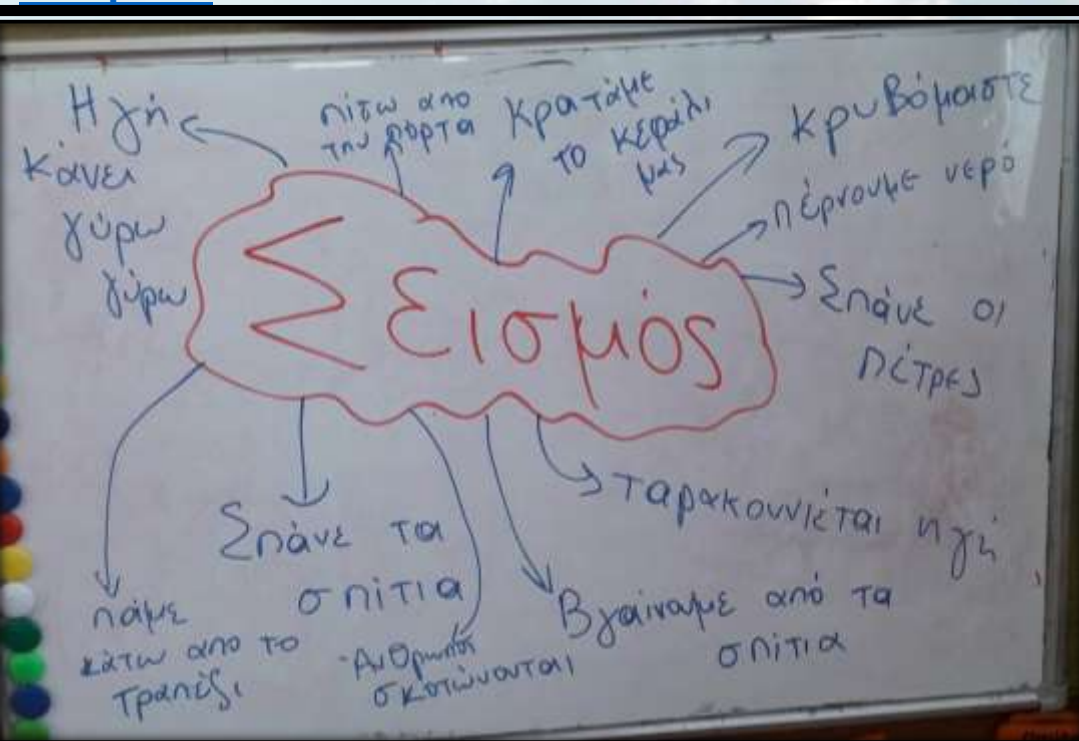 Η γή
κάνει
γύρω
γύρω
πίσω από
την πόρτα
Κρατάμε
το κεφάλι
μας
κρυβόμαστε
πέρνουμε νερό
Σπάνε οι
πέτρες
Σεισμός
Ταρακουνιέται η γή
Βγαίναμε από τα
σπίτια
Άνθρωποι
σκοτώνονται
Σπάνε τα
σπίτια
πάμε
κάτω από το
τραπέζι